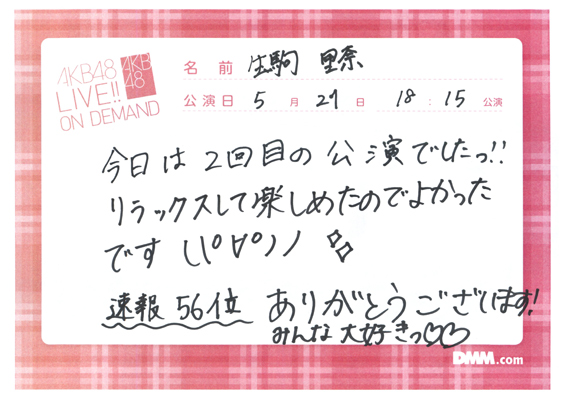 AKB48
LIVE!!
ON DEMAND
AKB
48
名前 生駒 里奈
公演日 5月27日 18:15公演
今日は2回目の公演でしたっ!!
リラックスして楽しめたのでよかった
です \(°∀°)ノ
速報 56位 ありがとうございます!
みんな大好きっ♡♡
DMM.com